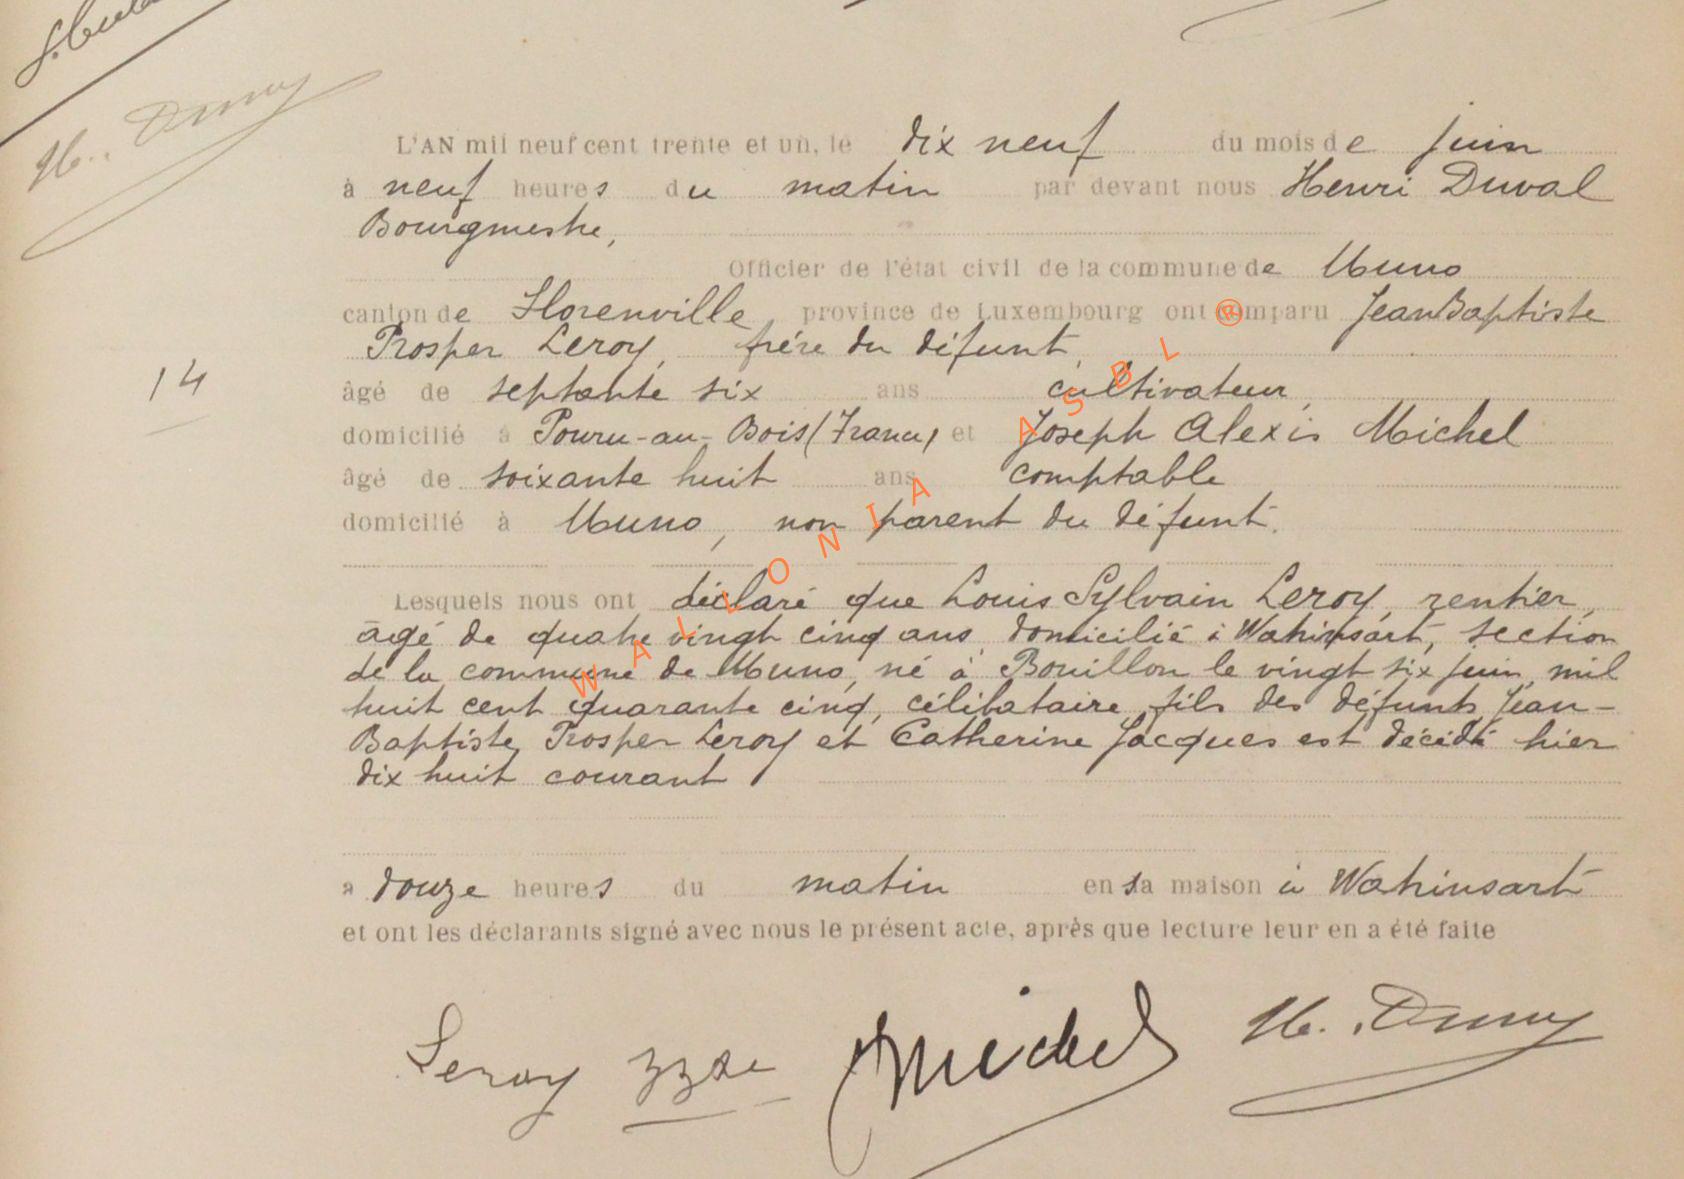 H. Duval
L'AN mil neuf cent trente et un, le dix neuf du mois de juin
à neuf heures du matin par devant nous Henri Duval
Bourgmestre,
Officier de l'état civil de la commune de Muno
canton de Florenville province de Luxembourg ont comparu Jean Baptiste
Prosper Leroy, frére du défunt,
âgé de septante six ans cultivateur,
domicilié à Pouru-au-Bois (France) et Joseph Alexis Michel
14
âgé de soixante huit ans comptable
domicilié à Muno, non parent du défunt.
Lesquels nous ont déclaré que Louis Sylvain Leroy, rentier,
âgé de quatre vingt cinq ans, domicilié à Watrinsart, section
de la commune de Muno, né à Bouillon le vingt six juin mil
huit cent quarante cinq, célibataire, fils des défunts Jean-
Baptiste Prosper Leroy et Catherine Jacques est décédé hier
dix huit courant
à douze heures du matin en sa maison à Watrinsart
et ont les déclarants signé avec nous le présent acte, après que lecture leur en a été faite
Leroy Michel H. Duval
WALLONIA ASBL ®